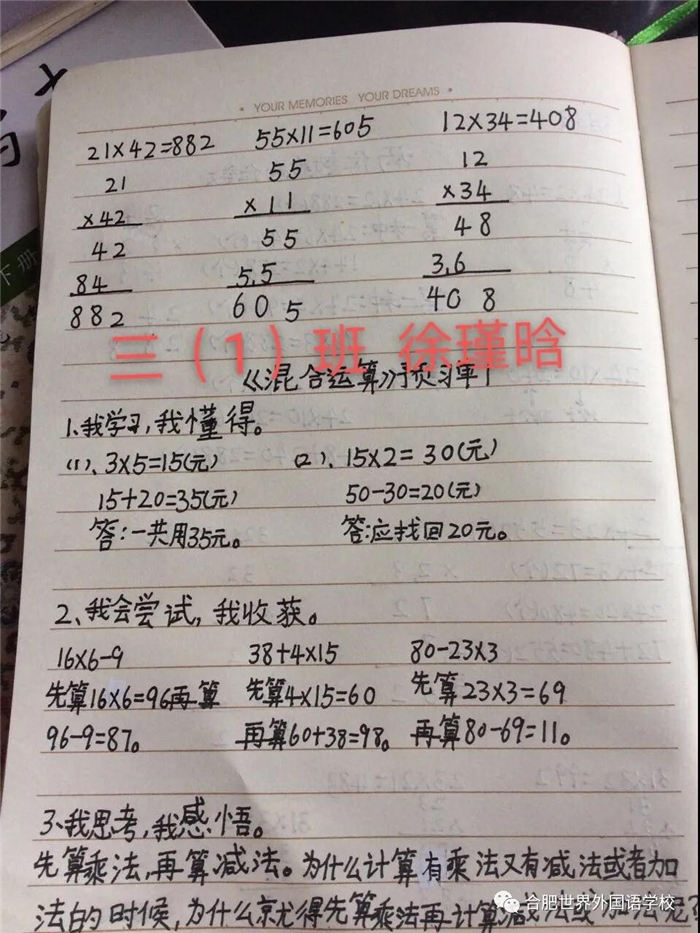 YOUR MEMORIES YOUR DREAMS
21×42=882 55×11=605 12×34=408
21 55 12
×42 ×11 ×34
42 55 48
84 5,5 3,6
882 605 408
三（1）班 徐瑾晗
《混合运算》预习单
1、我学习,我懂得。
(1)、3×5=15(元) (2)、15×2=30(元)
15+20=35(元) 50-30=20(元)
答:一共用35元。 答:应找回20元。
2、我会尝试,我收获。
16×6-9 38+4×15 80-23×3
先算16×6=96再算 先算4×15=60 先算23×3=69
96-9=87。 再算60+38=98。 再算80-69=11。
3、我思考,我感悟。
先算乘法,再算减法。为什么计算有乘法又有减法或者加
法的时候,为什么就得先算乘法再计算减法或加法呢?
合肥世界外国语学校
下册